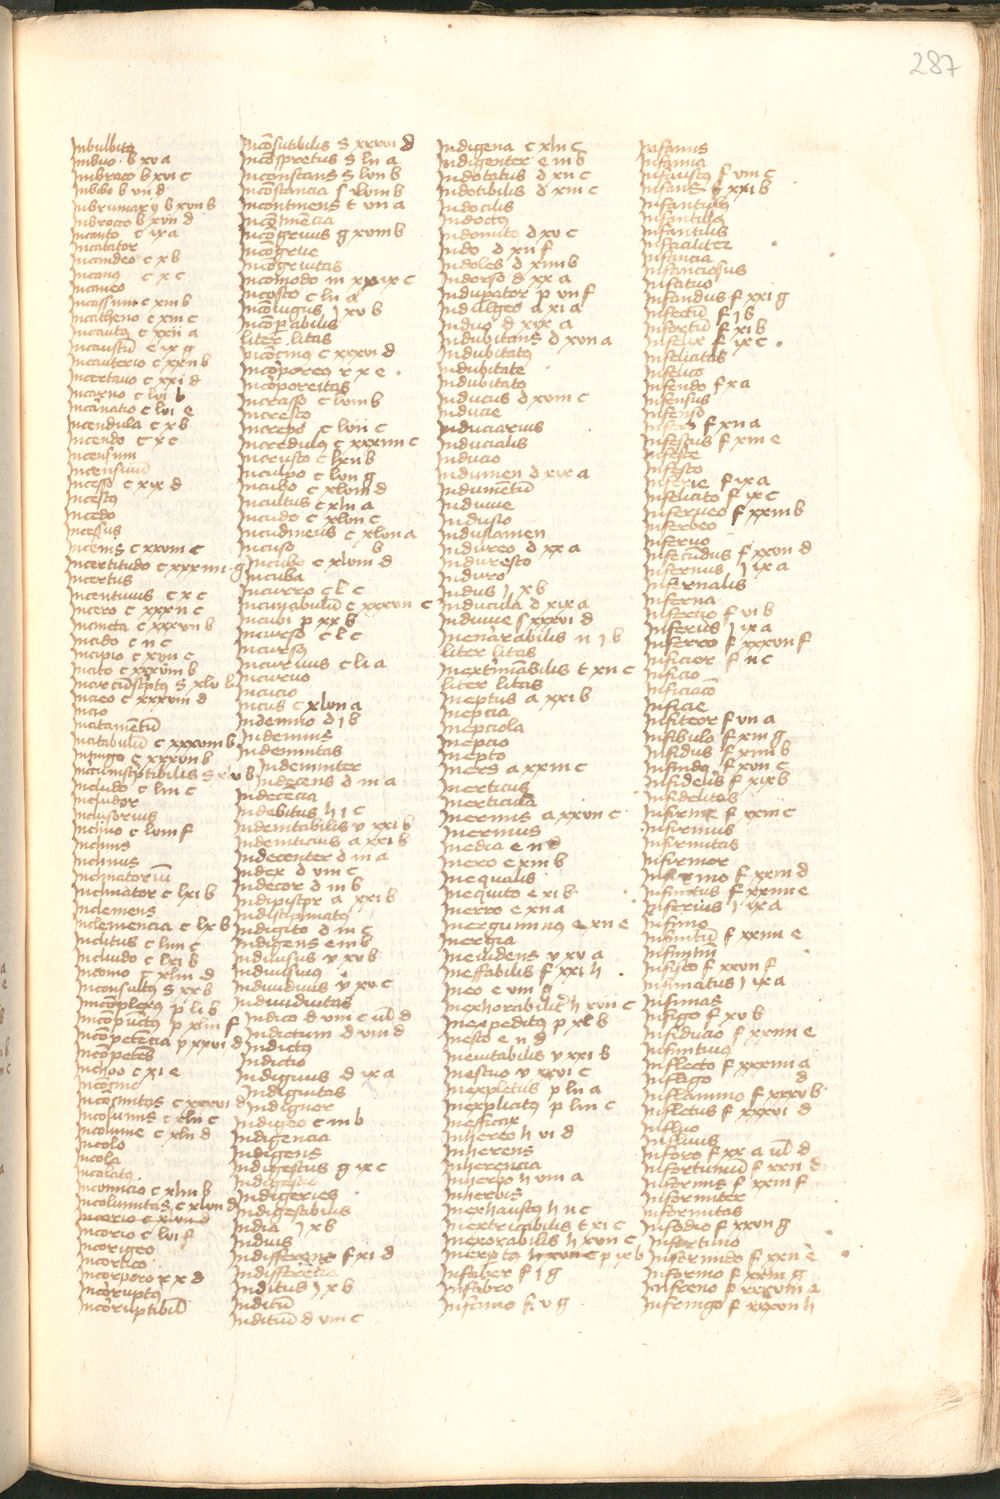 287
Inbulbito
Inbuo b xv a
Inbraco b xvi c
Inbibo b vii d
Inbrumarij b xvii b
Inbrocco b xvii d
Incanto c ix a
Incantator
Incandeo c x b
Incanus c x c
Incaneo
Incassum c xiii b
Incatheno c xiii c
Incautus c xxii a
Incaustū e ix g
Incauterio c xxii b
Incertauo c xxi d
Incarno c lvi b
Incarnatio c lvi e
Incendula c x b
Incendo c x c
Incensum
Incensiuū
Incesso c xix d
Incestus
Incedo
Incessus
Incenis c xxviii c
Incertitudo c xxxiiii g
Incertus
Incentiuus c x c
Incero c xxxii c
Incincta c xxxvii b
Incido c ii c
Incipio c xvii c
Incito c xxxviii b
Incircūscriptus s xlv b
Incieo c xxxviii d
Incio
Incitamentū
Incitabulū c xxxviii b
Infringo c xxxvii b
Incircumscriptibilis s xlv b
Includo c liii c
Inclusor
Inclusorius
Inclino c lviii f
Inclinis
Inclinus
Inclinatoriū
Inclinator c lxi b
Inclemens
Inclemencia c lx b
Inclitus c liiii c
Incluido c lxi b
Incomo c xliii d
Inconsultus s xx b
Incōplexus p li b
Incōpunctus p xliii f
Incōpetēcia p xxvi d
Incōpetēs
Inchoo c xi e
Incōcinne
Incōcinnitas c xxxvi d
Incolumis c xlii c
Incolumē c xlii d
Incolo
Incola
Incolatus
Inconuicio c xliii b
Incolumitas c xlvii d
Incorio c xlvii d
Incorio c lvi f
Incorigeo
Incortico
Incorporo x x d
Incorruptus
Incorruptibilis
Incōsutibilis s xxxvi d
Incōspretus s lii a
Inconstans s lvii b
Incōstancia s lviii b
Incontinens t vii a
Incōtinēcia
Incōgruus g xviii b
Incōgrue
Incōgruitas
Incōmodo m xxix c
Incosto c lii a
Incōiugus j xv b
Incōparabilis
liter litas
Incōcinus c xxxvi d
Incōporeus x x e
Incōporeitas
Incrasso c lviii b
Incresco
Increpo c lvii c
Incredulus c xxxiiii c
Incrusto c lxii b
Inculpo c lvii g
Incubo c xlviii d
Incultus c xlii a
Incudo c xlvii c
Incudineus c xlvii a
Incuso b
Incubo c xlviii d
Incuba
Incurro c l c
Incunabulū c xxxvii c
Incubi p xx b
Incurso c l c
Incursus
Incuruus c li a
Incuruo
Incucio
Incus c xlvii a
Indemno d j b
Indemnis
Indemnitas
Indemniter
Indecens d iii a
Indecēcia
Indebitus h j c
Indeuitabilis v xxi b
Indeuiticius a xxi b
Indecenter d iii a
Index d viii c
Indecor d iii b
Indipiscor a xxi b
Indisciplinatus
Indigito d iii c
Indigens e iii b
Indiuisus v xv b
Indiuisiuus
Indiuiduus v xv c
Indiuiduitas
Indico d viii c ul d
Indictum d viii d
Indictus
Indictio
Indignus d ix a
Indignitas
Indignor
Indigeo c iii b
Indigencia
Indigens
Indigestus g ix c
Indigestio
Indigeries
Indigestibilis
India j x b
Indius
Indifferens f xi d
Indifferēcia
Inditus j x b
Inditū
Inditiū d viii c
Indigena c xlii c
Indigenter e iii b
Indotatus d xii c
Indotibilis d xiii c
Indocilis
Indoctus
Indomite d xv c
Indo d xii f
Indoles d xiiii b
Indorso d xx a
Indupator p vii f
Indulgeo a xi a
Induo d xix a
Indubitans d xvii a
Indubitatus
Indubitate
Indubitato
Inducus d xviii c
Inducie
Induciarius
Inducialis
Inducio
Indumen d xix a
Indumentū
Induuie
Indusio
Indusiamen
Indureo d xx a
Induresco
Induro
Indus j x b
Inducula d xix a
Induuie s xxxvi d
Inenarrabilis n j b
liter litas
Inextimabilis t xii c
liter litas
Ineptus a xxi b
Inepcia
Inepciola
Inepcio
Inepto
Iners a xxiii c
Inerticus
Inerticula
Inermis a xxvii c
Inermus
Inedia e ii d
Inero e xiii b
Inequalis
Inequito e xi b
Inerro e xii a
Inerguminus e xii e
Inergia
Ineuidens v xv a
Ineffabilis f xxi h
Ineo e viii g
Inexhorabilis h xvii c
Inexpeditus p xl b
Inesco e ii d
Ineuitabilis v xxi b
Inestuo v xxvi c
Inexpletus p lii a
Inexplicitus p liii c
Inefficax
Inhereo h vi d
Inherens
Inherencia
Inherbo h viii a
Inherbis
Inexhaustus h ii c
Inextricabilis t xi c
Inexorabilis h xvii c
Inexperta h xvii c p ix b
Infaber f j g
Infabro
Infamo f v g
Infamis
Infamia
Infaustus f viii c
Infans f xxi b
Infantulus
Infantilla
Infantilis
Infaciliter
Infancia
Infanciosus
Infatuo
Infandus f xxi g
Infectū f j b
Infortū f xi b
Infelix f ix c
Infelicitas
Infelico
Infendo f x a
Infensus
Infenso
Infero f xii a
Infestus f xiii e
Infeste
Infesto
Inferie f ix a
Infelicito f ix c
Inferueo f xxiii b
Inferbeo
Inferuo
Infecūdus f xxvii d
Infernus j ix a
Infernalis
Inferna
Infectio f vi b
Inferius j ix a
Inferro f xxxvii f
Inficior f ii c
Inficio
Inficiacō
Inficie
Infiteor f vii a
Infibulo f xiii g
Infidus f xiiii b
Infindo f xvii c
Infidelis f xix b
Infidelitas
Infirme f xxiii c
Infirmus
Infirmitas
Infirmor
Infirmo f xxiii d
Infinitus f xxiiii e
Inferius j ix a
Infimo
Infinitū f xxiiii e
Infinitiui
Infisco f xxvii f
Infimatus j ix a
Infimas
Infigo f xv b
Infiducio f xxiiii e
Infinitiuus
Inflecto f xxxiiii a
Infligo d
Inflammo f xxxv b
Infletus f xxxvi d
Influo
Influuis
Inforo f xx a ul d
Infortuniū f xxii d
Informis f xxiii f
Informiter
Informitas
Infodio f xxvii g
Infortuno
Informido f xxii e
Informo f xxiii g
Infreno f xxxvii a
Infringo f xxxvii h